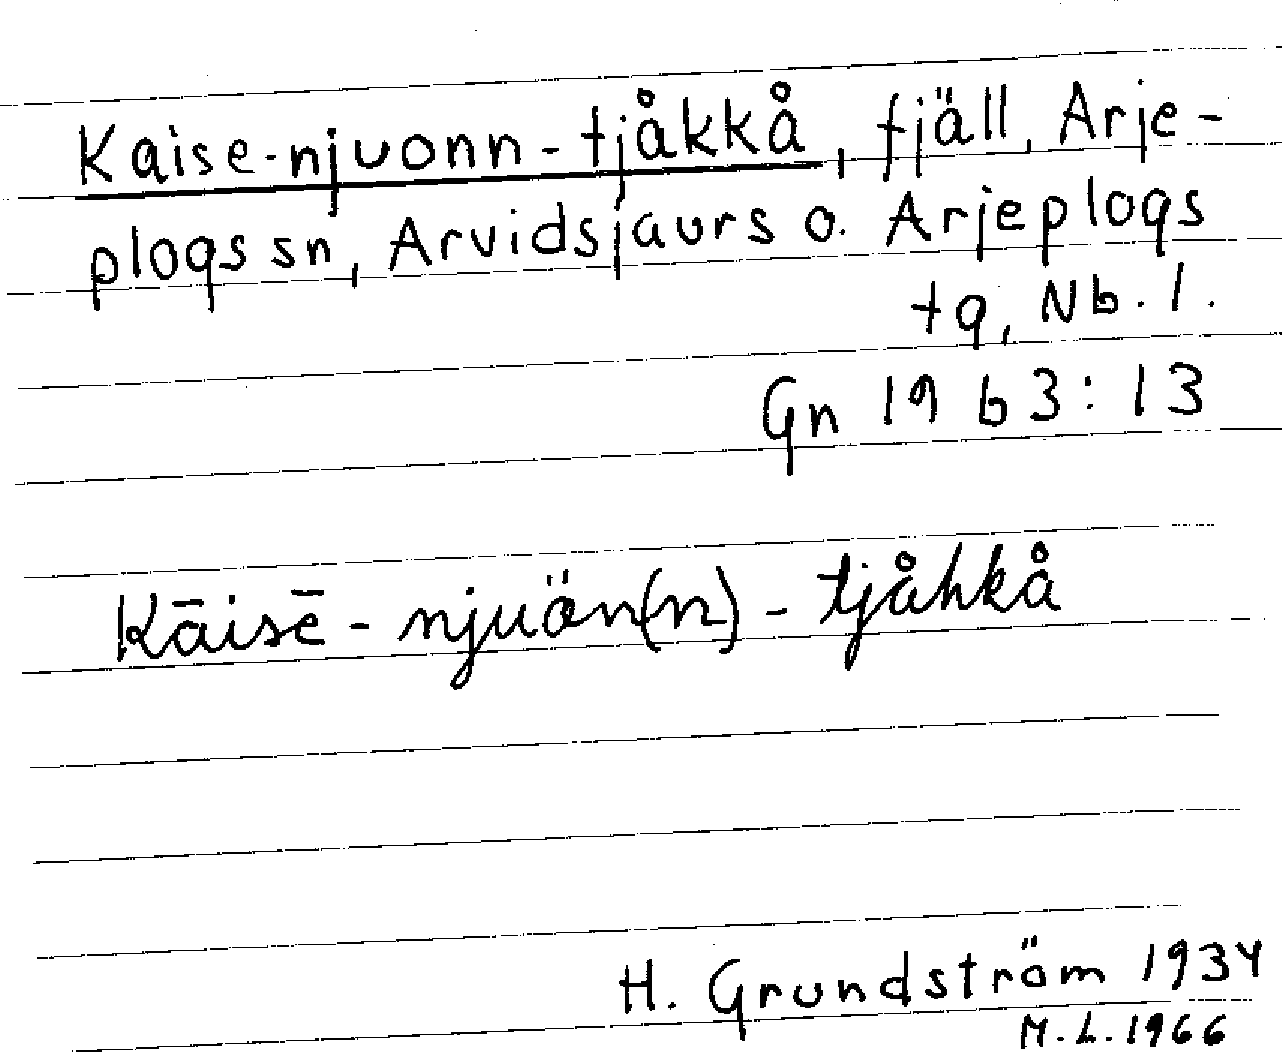 Kaise-njuonn-tjåkkå, fjäll, Arje-
plogs sn, Arvidsjaurs o. Arjeplogs
tg, Nb. l.
Gn 1963:13
Kāisē-njuön(n)-tjåhkå
H. Grundström 1934
M.L.1966